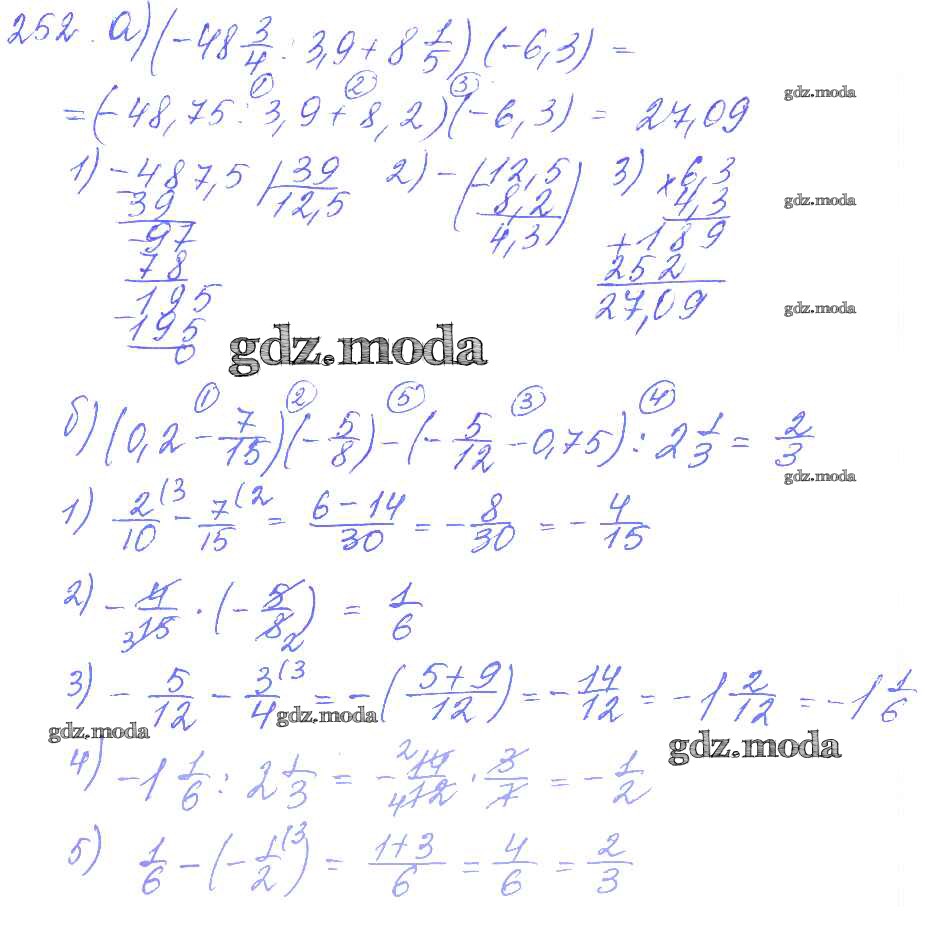 252. а) (-48 3/4 : 3,9 + 8 1/5) (-6,3) =
① ② ③
= (-48,75 : 3,9 + 8,2) (-6,3) = 27,09
gdz.moda
1) -487,5 | 39 2) -(12,5 3) × 6,3
39 12,5 - 8,2) 4,3
-97 4,3 + 189
78 252
-195 27,09
195
0
gdz.moda
gdz.moda
gdz.moda
① ② ⑤ ③ ④
б) (0,2 - 7/15) (-5/8) - (-5/12 - 0,75) : 2 1/3 = 2/3
gdz.moda
1) 2/10 (3 - 7/15 (2 = (6-14)/30 = -8/30 = -4/15
2) -4/15 3 · (-5/8 2) = 1/6
3) -5/12 - 3/4 (3 = -((5+9)/12) = -14/12 = -1 2/12 = -1 1/6
gdz.moda gdz.moda gdz.moda
4) -1 1/6 : 2 1/3 = - 2 14/12 4 · 3/7 = -1/2
5) 1/6 - (-1/2 (3) = (1+3)/6 = 4/6 = 2/3